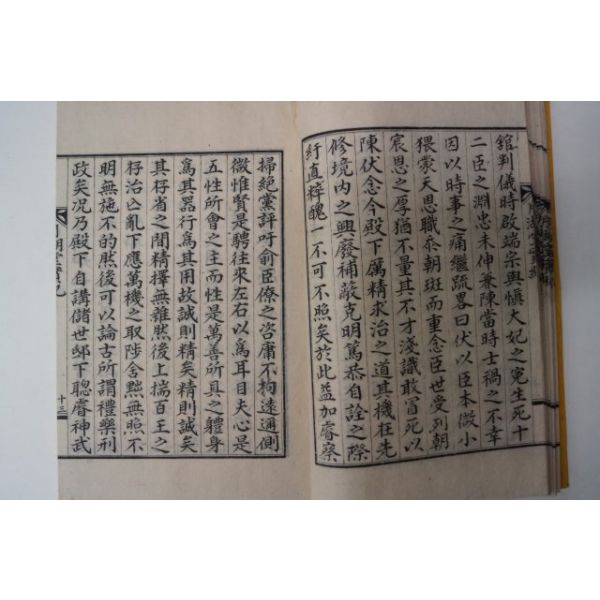 舘判儀時啟端宗與愼大妃之寃生死十
二臣之淵忠未伸兼陳當時士禍之不幸
因以時事之痛繼疏畧曰伏以臣本微小
猥蒙天恩職叅朝班而重念臣世受列朝
宸恩之厚猶不量其不才淺識敢冒死以
陳伏念今殿下厲精求治之道其機在先
修境内之興廢補蔽克明篤恭自詮之際
紆直粹醜一不可不照矣於此益加睿察
掃絶黨評吁俞臣僚之咨庸不拘遠通側
微惟賢是騁往來左右以爲耳目夫心是
五性所會之主而性是萬善所具之軆身
爲其器行爲其用故誠則精矣精則誠矣
其存省之間精擇無雜然後上揣百王之
存治亡亂下應萬機之取陟舍黜無照不
明無施不的然後可以論古所謂禮樂刑
政矣况乃殿下自講儲世邸下聰睿神武
十三